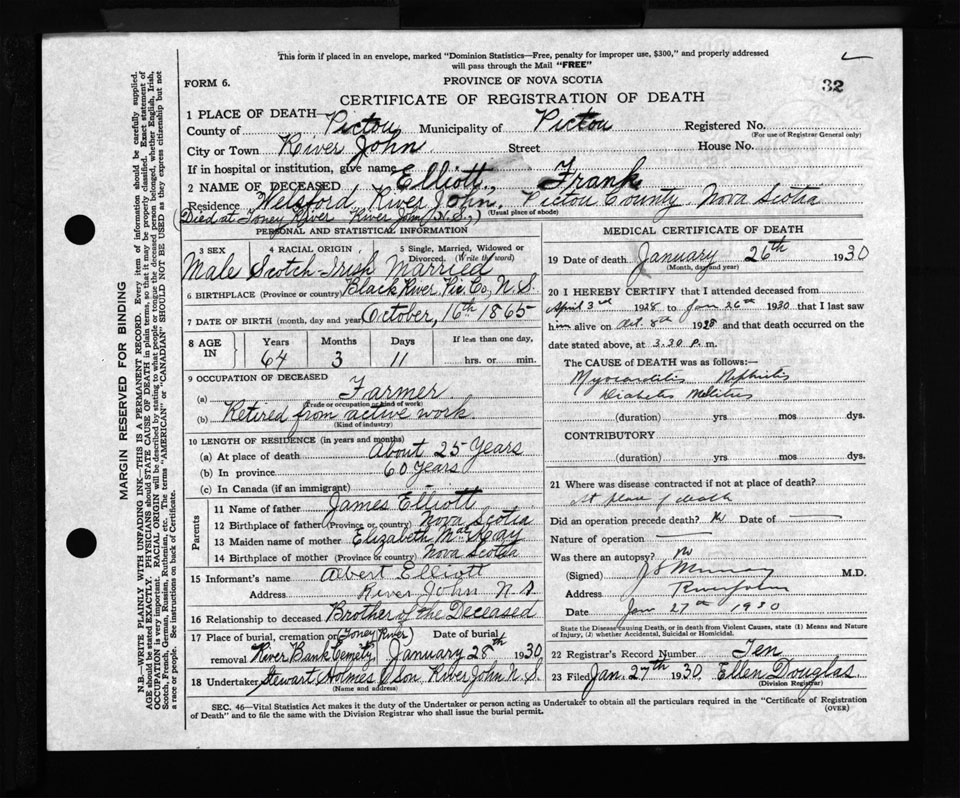 This form if placed in an envelope, marked "Dominion Statistics—Free, penalty for improper use, $300," and properly addressed
will pass through the Mail "FREE"
FORM 6.
PROVINCE OF NOVA SCOTIA
32
CERTIFICATE OF REGISTRATION OF DEATH
1 PLACE OF DEATH—
County of Pictou Municipality of Pictou Registered No.
(For use of Registrar General only)
City or Town River John Street House No.
If in hospital or institution, give name
2 NAME OF DECEASED Elliott, Frank
Residence Welsford, River John, Pictou County Nova Scotia
(Usual place of abode)
(Died at Toney River River John, N.S.,)
PERSONAL AND STATISTICAL INFORMATION
3 SEX 4 RACIAL ORIGIN 5 Single, Married, Widowed or Divorced. (Write the word)
Male Scotch-Irish Married
6 BIRTHPLACE (Province or country) Black River, Pic. Co., N.S.
7 DATE OF BIRTH (month, day and year) October, 16th 1865
8 AGE IN Years Months Days If less than one day,
64 3 11 hrs. or min.
9 OCCUPATION OF DECEASED
(a) Farmer
(Trade or occupation or kind of work)
(b) Retired from active work
(Kind of industry)
10 LENGTH OF RESIDENCE (in years and months)
(a) At place of death About 25 Years
(b) In province 60 Years
(c) In Canada (if an immigrant)
Parents
11 Name of father James Elliott
12 Birthplace of father (Province or country) Nova Scotia
13 Maiden name of mother Elizabeth
14 Birthplace of mother (Province or country) Nova Scotia
15 Informant's name Albert Elliott
Address River John N.S.
16 Relationship to deceased Brother of the Deceased
17 Place of burial, cremation or (Toney River) Date of burial
removal River Bank Cemety. January 28th 1930
18 Undertaker Stewart Holmes & Son, River John N.S.
(Name and address)
MEDICAL CERTIFICATE OF DEATH
19 Date of death January 26th 1930
(Month, day and year)
20 I HEREBY CERTIFY that I attended deceased from
April 3rd 1928 to Jan 26th 1930 that I last saw
him alive on Oct. 8th 1928 and that death occurred on
date stated above, at 3.30 P.m.
The CAUSE OF DEATH was as follows:—
Myocarditis Nephritis
Diabetes Mellitus
(duration) yrs mos dys.
CONTRIBUTORY
(duration) yrs. mos. dys.
21 Where was disease contracted if not at place of death?
At place of death
Did an operation precede death? Date of
Nature of operation
Was there an autopsy? No
(Signed) J S Murray M.D.
Address River John
Date Jan 27th 1930
State the Disease causing Death, or in death from Violent Causes, state (1) Means and Nature
of Injury, (2) whether Accidental, Suicidal or Homicidal.
22 Registrar's Record Number Ten
23 Filed Jan. 27th 1930 Ellen Douglas.
(Division Registrar)
SEC. 46—Vital Statistics Act makes it the duty of the Undertaker or person acting as Undertaker to obtain all the particulars required in the "Certificate of Registration
of Death" and to file the same with the Division Registrar who shall issue the burial permit.
(OVER)
MARGIN RESERVED FOR BINDING
N.B.—WRITE PLAINLY WITH UNFADING INK—THIS IS A PERMANENT RECORD. Every item of information should be carefully supplied.
AGE should be stated EXACTLY. PHYSICIANS should STATE CAUSE OF DEATH in plain terms, so that it may be properly classified. Exact statement of
OCCUPATION is very important. RACIAL ORIGIN will be described by stating to what people or tongue the deceased person belonged, whether English, Irish,
Scotch, French, German, Russian, Ruthenian, etc. The terms "AMERICAN" or "CANADIAN" SHOULD NOT BE USED as they express citizenship but not
a race or people. See instructions on back of Certificate.